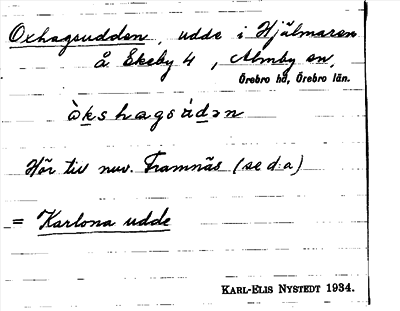 Oxhagsudden, udde i Hjälmaren
å Ekeby 4, Almby sn,
Örebro hd, Örebro län.
òkshagsúdən
Hör till nuv. Framnäs (se d:a)
= Karlona udde
KARL-ELIS NYSTEDT 1934.